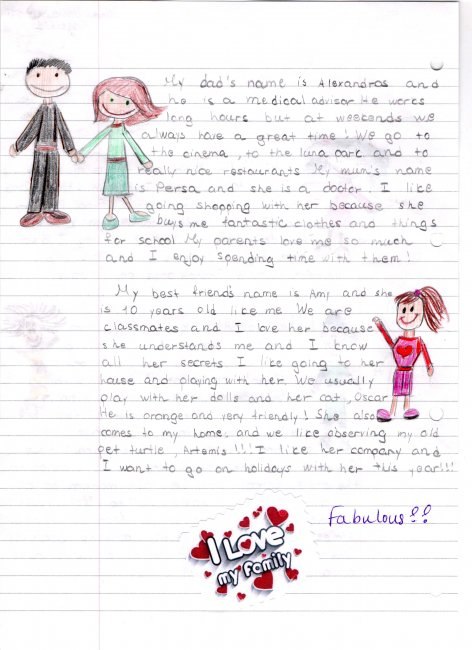 My dad's name is Alexandros and
he is a medical advisor He works
long hours but at weekends we
always have a great time! We go to
the cinema, to the luna parc and to
really nice restaurants My mum's name
is Persa and she is a doctor. I like
going shopping with her because she
buys me fantastic clothes and things
for school My parents love me so much
and I enjoy spending time with them!
My best friend's name is Amy and she
is 10 years old like me We are
classmates and I love her because
she understands me and I know
all her secrets I like going to her
house and playing with her. We usually
play with her dolls and her cat, Oscar
He is orange and very friendly! She also
comes to my home and we like observing my old
pet turtle, Artemis!!! I like her company and
I want to go on holidays with her this year!!!
Fabulous!!
I Love
my family